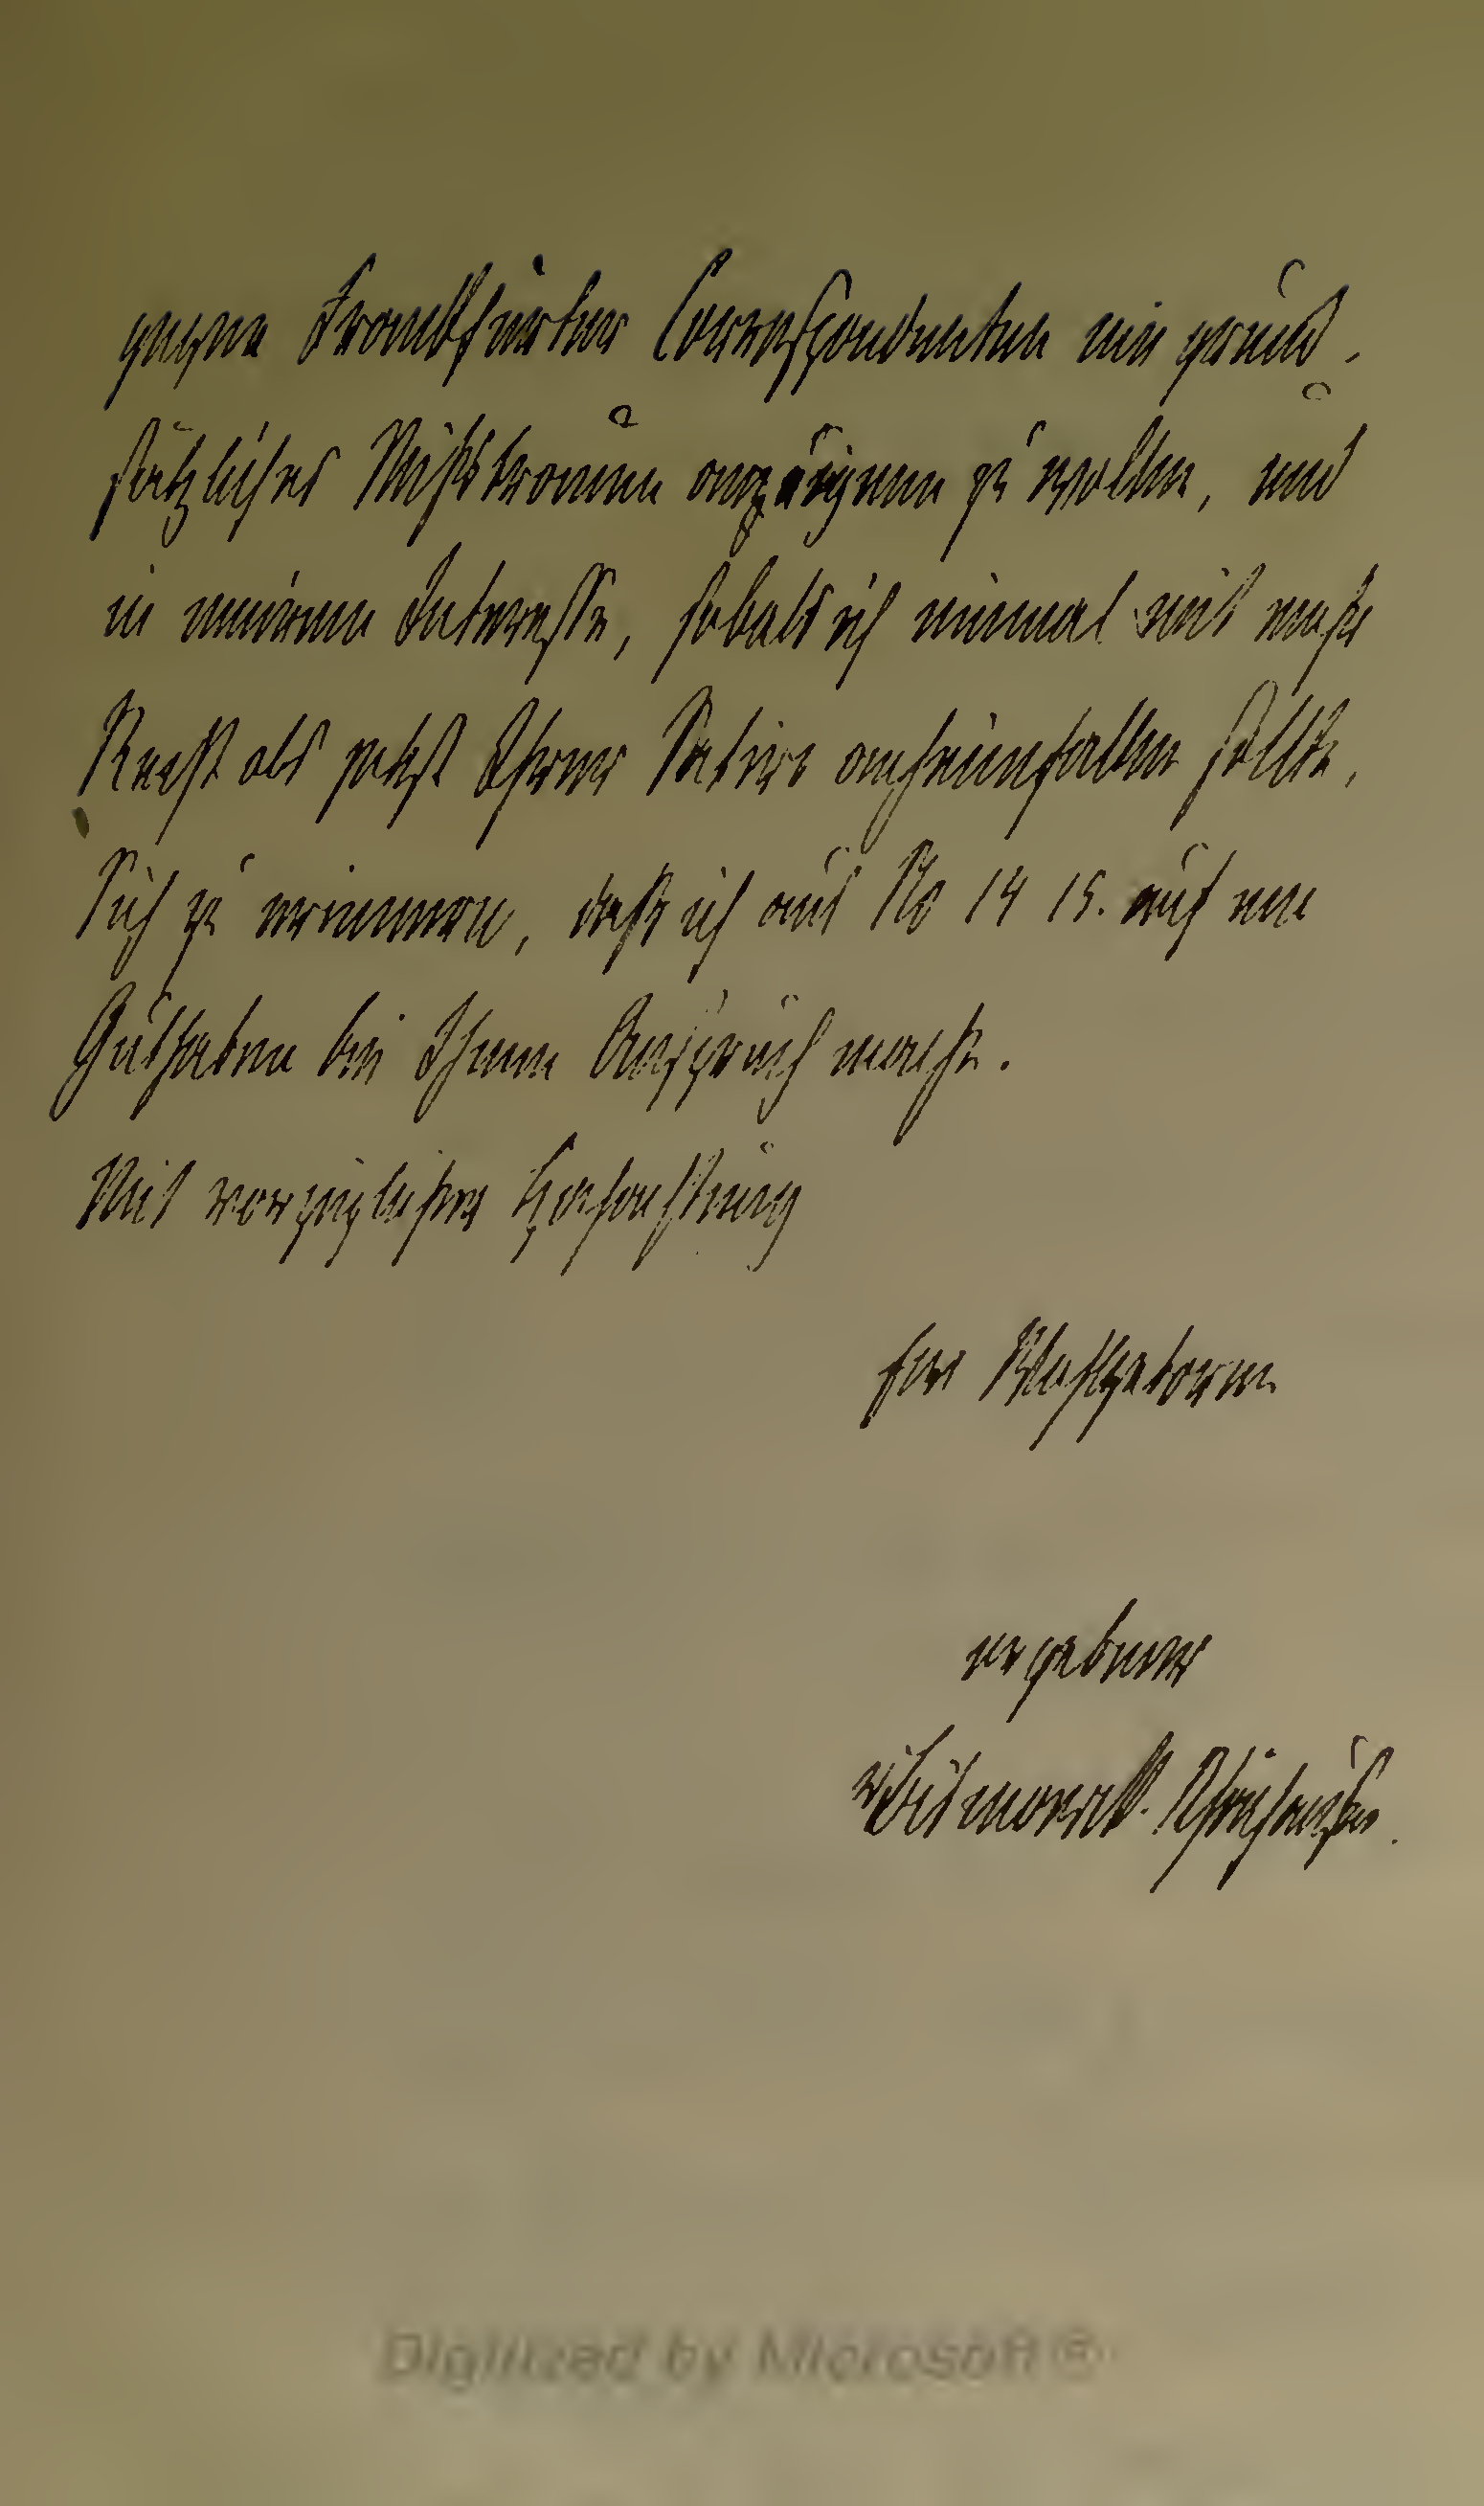 gegen Frankfurter Correspondenten ein grund-
sätzliches Mißtrauen anzueignen zu wollen, und
in meinem Interesse, sobald ich einmal mit mehr
Recht als jetzt Ihrer Satire anheimfallen sollte,
Sich zu erinnern, daß ich aus No 14 15. auf ein
Guthaben bei Ihnen Anspruch mache.
Mit vorzüglicher Hochachtung
Euer Wohlgeboren
ergebener
vBismarck-Schönhausen.
Digitized by Microsoft ®